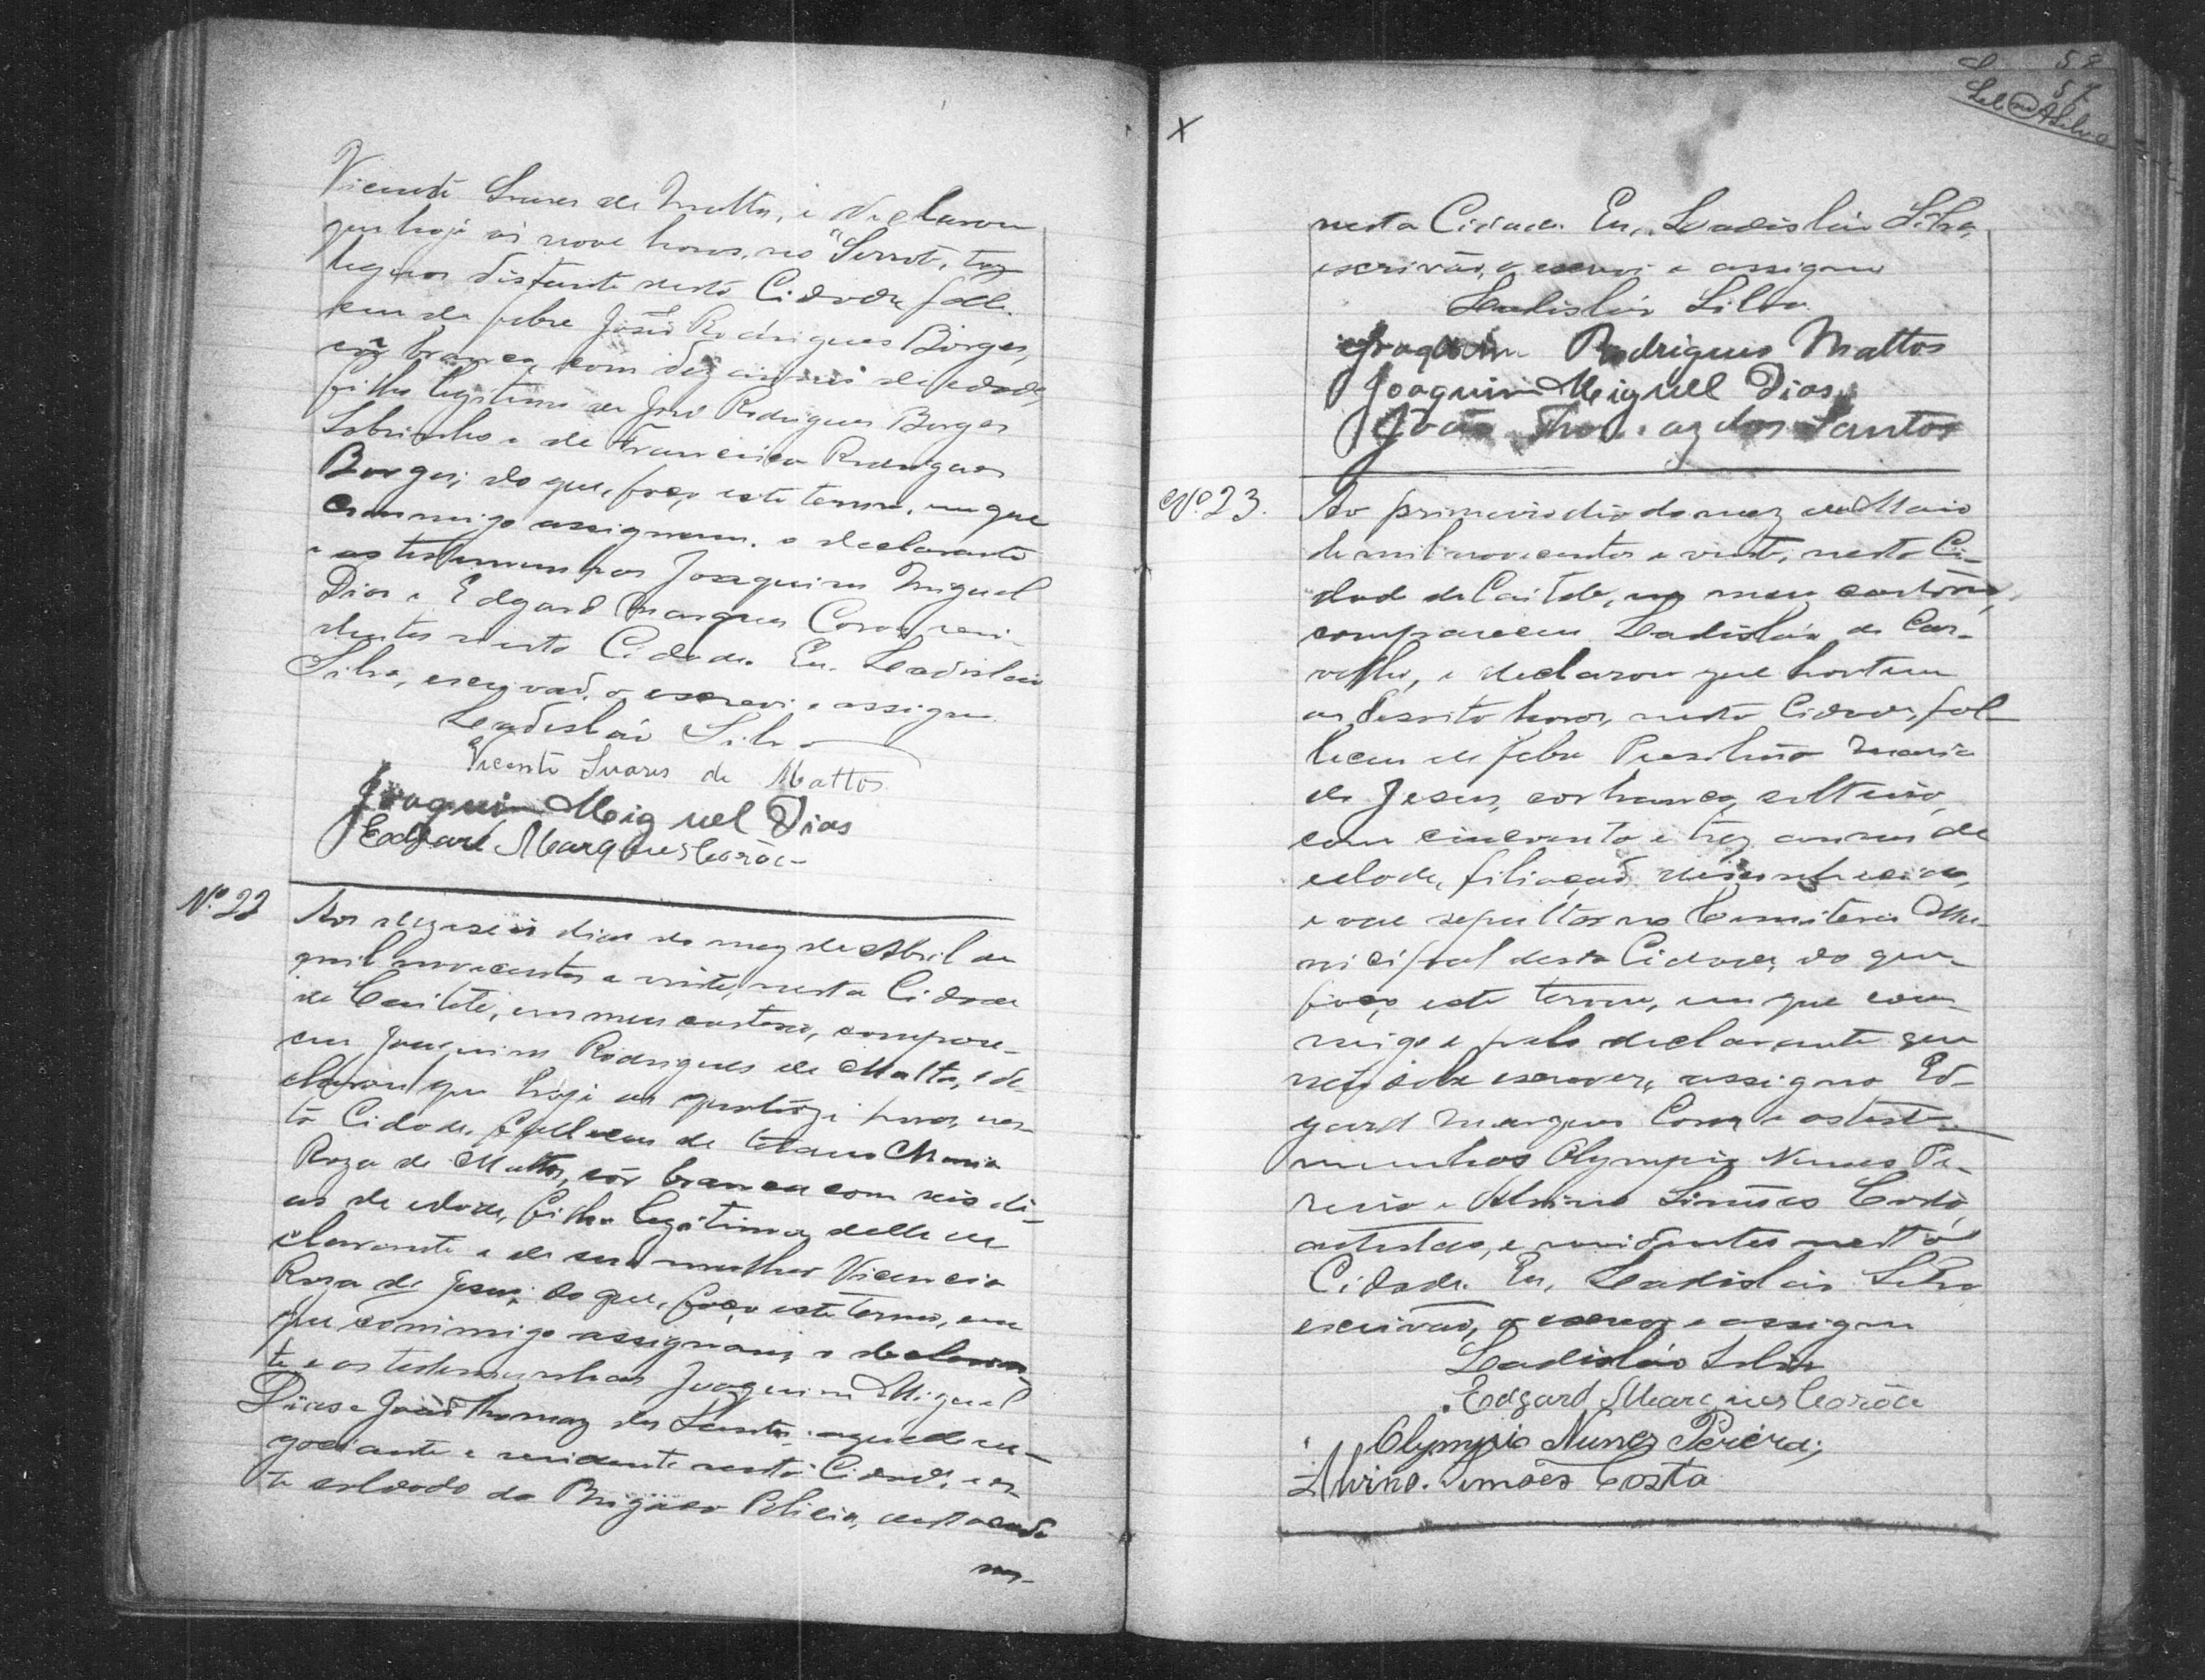 Vicente Soares de Mattos, e declarou
que hoje ás nove horas, no "Serrote, tres
leguas distante desta Cidade, falle-
ceu de febre José Rodrigues Borges,
côr branca, com dez annos de edade,
filho legitimo de José Rodrigues Borges
Sobrinho e de Francisca Rodrigues
Borges; do que, faço este termo, em que
commigo assignam, o declarante
e as testemunhas Joaquim Miguel
Dias e Edgard Marques Coroa, resi-
dentes nesta Cidade. Eu, Ladisláo
Silva, escrivão, o escrevi e assigno
Ladisláo Silva
Vicente Suares de Mattos
Joaquim Meiguel Dias
Edgard Marques Corôa
Nº 22
Aos dezaseis dias do mez de Abril de
mil novecentos e vinte, nesta Cidade
de Caiteté, em meu cartorio, compare-
ceu Joaquim Rodrigues de Mattos, e de-
clarou que hoje as quatorze horas, nes-
ta Cidade, falleceu de tetano Maria
Roza de Mattos, côr branca com seis di-
as de edade, filha legitima delle de-
clarante e de sua mulher Vicencia
Roza de Jesus; do que, faço este termo, em
que commigo assignam, o declaran-
te e as testemunhas Joaquim Miguel
Dias e João Thomaz dos Santos, aquele ne-
gociante e residente nesta Cidade, e es-
te soldado da Brigada Policia, destacado
nes-
52
nesta Cidade. Eu, Ladisláo Silva,
escrivão, o escrevi e assigno
Ladisláo Silva
Joaquim Rodrigues Mattos
Joaquim Meiguel Dias
João Thomaz dos Santos
Nº 23.
Ao primeiro dia do mez de Maio
de mil novecentos e vinte, nesta Ci-
dade de Caiteté, em meu cartorio,
compareceu Ladisláo de Car-
valho, e declarou que hontem
as desoito horas, nesta Cidade, fal
leceu de febre Maria
de Jesus, cor branca, solteira,
com cincoenta e trez annos de
edade, filiação desconhecida,
e vae sepultar no Cemiterio Mu-
nicipal desta Cidade, do que
faço este termo, em que com
migo e pelo declarante que
não sabe escrever, assigna Ed-
gard Marques Coroa e as teste-
munhas Olympio Nunes Pe-
reira e Alvino Simões Costa,
artistas, e residentes nesta
Cidade. Eu, Ladisláo Silva
escrivão, o escrevi e assigno
Ladisláo Silva
Edgard Marques Corôa
Olympio Nunes Pereira;
Alvino. Simões Costa